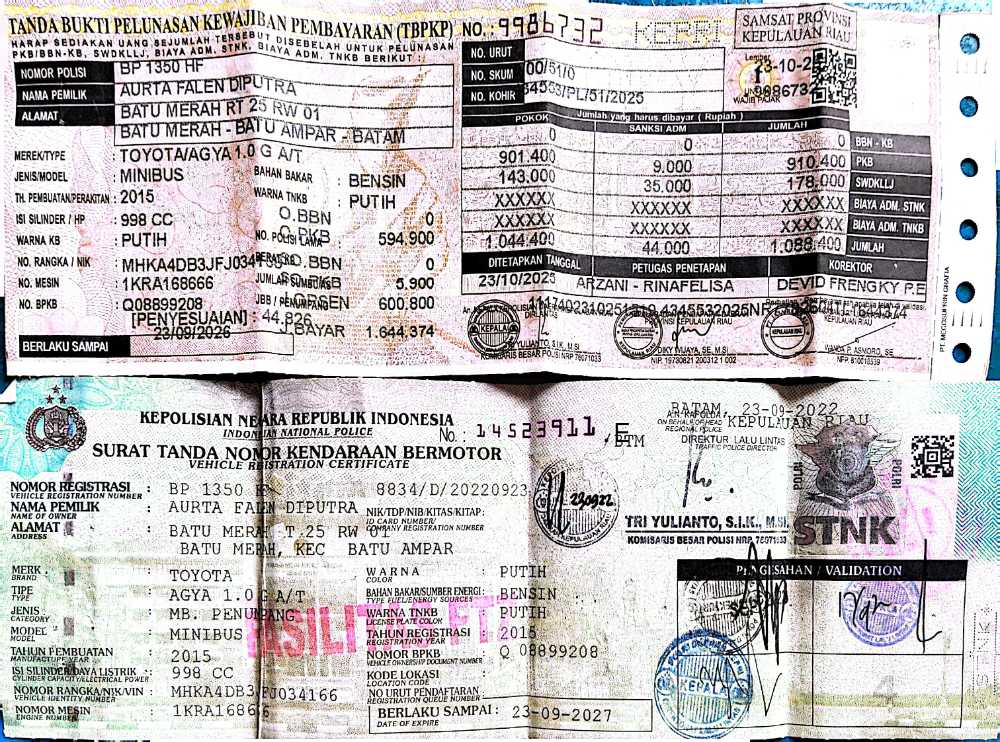 TANDA BUKTI PELUNASAN KEWAJIBAN PEMBAYARAN (TBPKP) NO.: 9986732 KERRI
HARAP SEDIAKAN UANG SEJUMLAH TERSEBUT DISEBELAH UNTUK PELUNASAN
PKB/BBN-KB, SWDKLLJ, BIAYA ADM. STNK, BIAYA ADM. TNKB BERIKUT :
SAMSAT PROVINSI
KEPULAUAN RIAU
NOMOR POLISI BP 1350 HF
NAMA PEMILIK AURTA FALEN DIPUTRA
ALAMAT BATU MERAH RT 25 RW 01
BATU MERAH - BATU AMPAR - BATAM
NO. URUT
NO. SKUM 00/51/0
NO. KOHIR /PL/51/2025
Lembar
23-10-2
WAJIB PAJAK
MEREK/TYPE : TOYOTA/AGYA 1.0 G A/T
JENIS/MODEL : MINIBUS
TH. PEMBUATAN/PERAKITAN : 2015
ISI SILINDER / HP : 998 CC
WARNA KB : PUTIH
NO. RANGKA / NIK : MHKA4DB3JFJ034166
NO. MESIN : 1KRA168666
NO. BPKB : Q08899208
[PENYESUAIAN] : 44.826
BERLAKU SAMPAI 23/09/2026
BAHAN BAKAR : BENSIN
WARNA TNKB : PUTIH
O.BBN 0
NO. POLISI LAMA O.PKB 594.900
O.BBN 0
5.900
600.800
J.BAYAR 1.644.374
Jumlah yang harus dibayar ( Rupiah )
POKOK SANKSI ADM JUMLAH
0 0 0 BBN - KB
901.400 9.000 910.400 PKB
143.000 35.000 178.000 SWDKLLJ
XXXXXX XXXXXX XXXXXX BIAYA ADM. STNK
XXXXXX XXXXXX XXXXXX BIAYA ADM. TNKB
1.044.400 44.000 1.088.400 JUMLAH
DITETAPKAN TANGGAL PETUGAS PENETAPAN KOREKTOR
23/10/2025 ARZANI - RINAFELISA DEVID FRENGKY P.E
KEPALA
YULIANTO, S.I.K, M.SI
KOMISARIS BESAR POLISI NRP 76071033
KEPULAUAN RIAU
DIKY WIJAYA, SE, M.SI
NIP. 19730821 200312 1 002
KEPULAUAN RIAU
WANDA P. ASMORO, SE
NPP. 810018539
KEPOLISIAN NEGARA REPUBLIK INDONESIA
INDONESIAN NATIONAL POLICE
No.: 14523911 E
SURAT TANDA NOMOR KENDARAAN BERMOTOR /BTM
VEHICLE REGISTRATION CERTIFICATE
BATAM, 23-09-2022
A.N. KAPOLDA KEPULAUAN RIAU
ON BEHALF OF HEAD
REGIONAL POLICE
DIREKTUR LALU LINTAS
TRAFFIC POLICE DIRECTOR
TRI YULIANTO, S.I.K., M.SI
KOMISARIS BESAR POLISI NRP 76071033
POLRI POLRI
STNK
NOMOR REGISTRASI : BP 1350 HF 8834/D/20220923
VEHICLE REGISTRATION NUMBER
NAMA PEMILIK : AURTA FALEN DIPUTRA
NAME OF OWNER
NIK/TDP/NIB/KITAS/KITAP:
ID CARD NUMBER/
COMPANY REGISTRATION NUMBER
ALAMAT : BATU MERAH T.25 RW 01
ADDRESS
BATU MERAH, KEC BATU AMPAR
MERK : TOYOTA
BRAND
TIPE : AGYA 1.0 G A/T
TYPE
JENIS : MB. PENUMPANG
CATEGORY
MODEL : MINIBUS
MODEL
TAHUN PEMBUATAN : 2015
MANUFACTURE YEAR
ISI SILINDER/DAYA LISTRIK : 998 CC
CYLINDER CAPACITY/ELECTRICAL POWER
NOMOR RANGKA/NIK/VIN : MHKA4DB3JFJ034166
VEHICLE IDENTITY NUMBER
NOMOR MESIN : 1KRA168666
ENGINE NUMBER
WARNA : PUTIH
COLOR
BAHAN BAKAR/SUMBER ENERGI : BENSIN
TYPE FUEL/ENERGY SOURCES
WARNA TNKB : PUTIH
LICENSE PLATE COLOR
TAHUN REGISTRASI : 2015
REGISTRATION YEAR
NOMOR BPKB : Q 08899208
VEHICLE OWNERSHIP DOCUMENT NUMBER
KODE LOKASI :
LOCATION CODE
NO URUT PENDAFTARAN :
REGISTRATION QUEUE NUMBER
BERLAKU SAMPAI : 23-09-2027
DATE OF EXPIRE
PENGESAHAN / VALIDATION
KEPALA